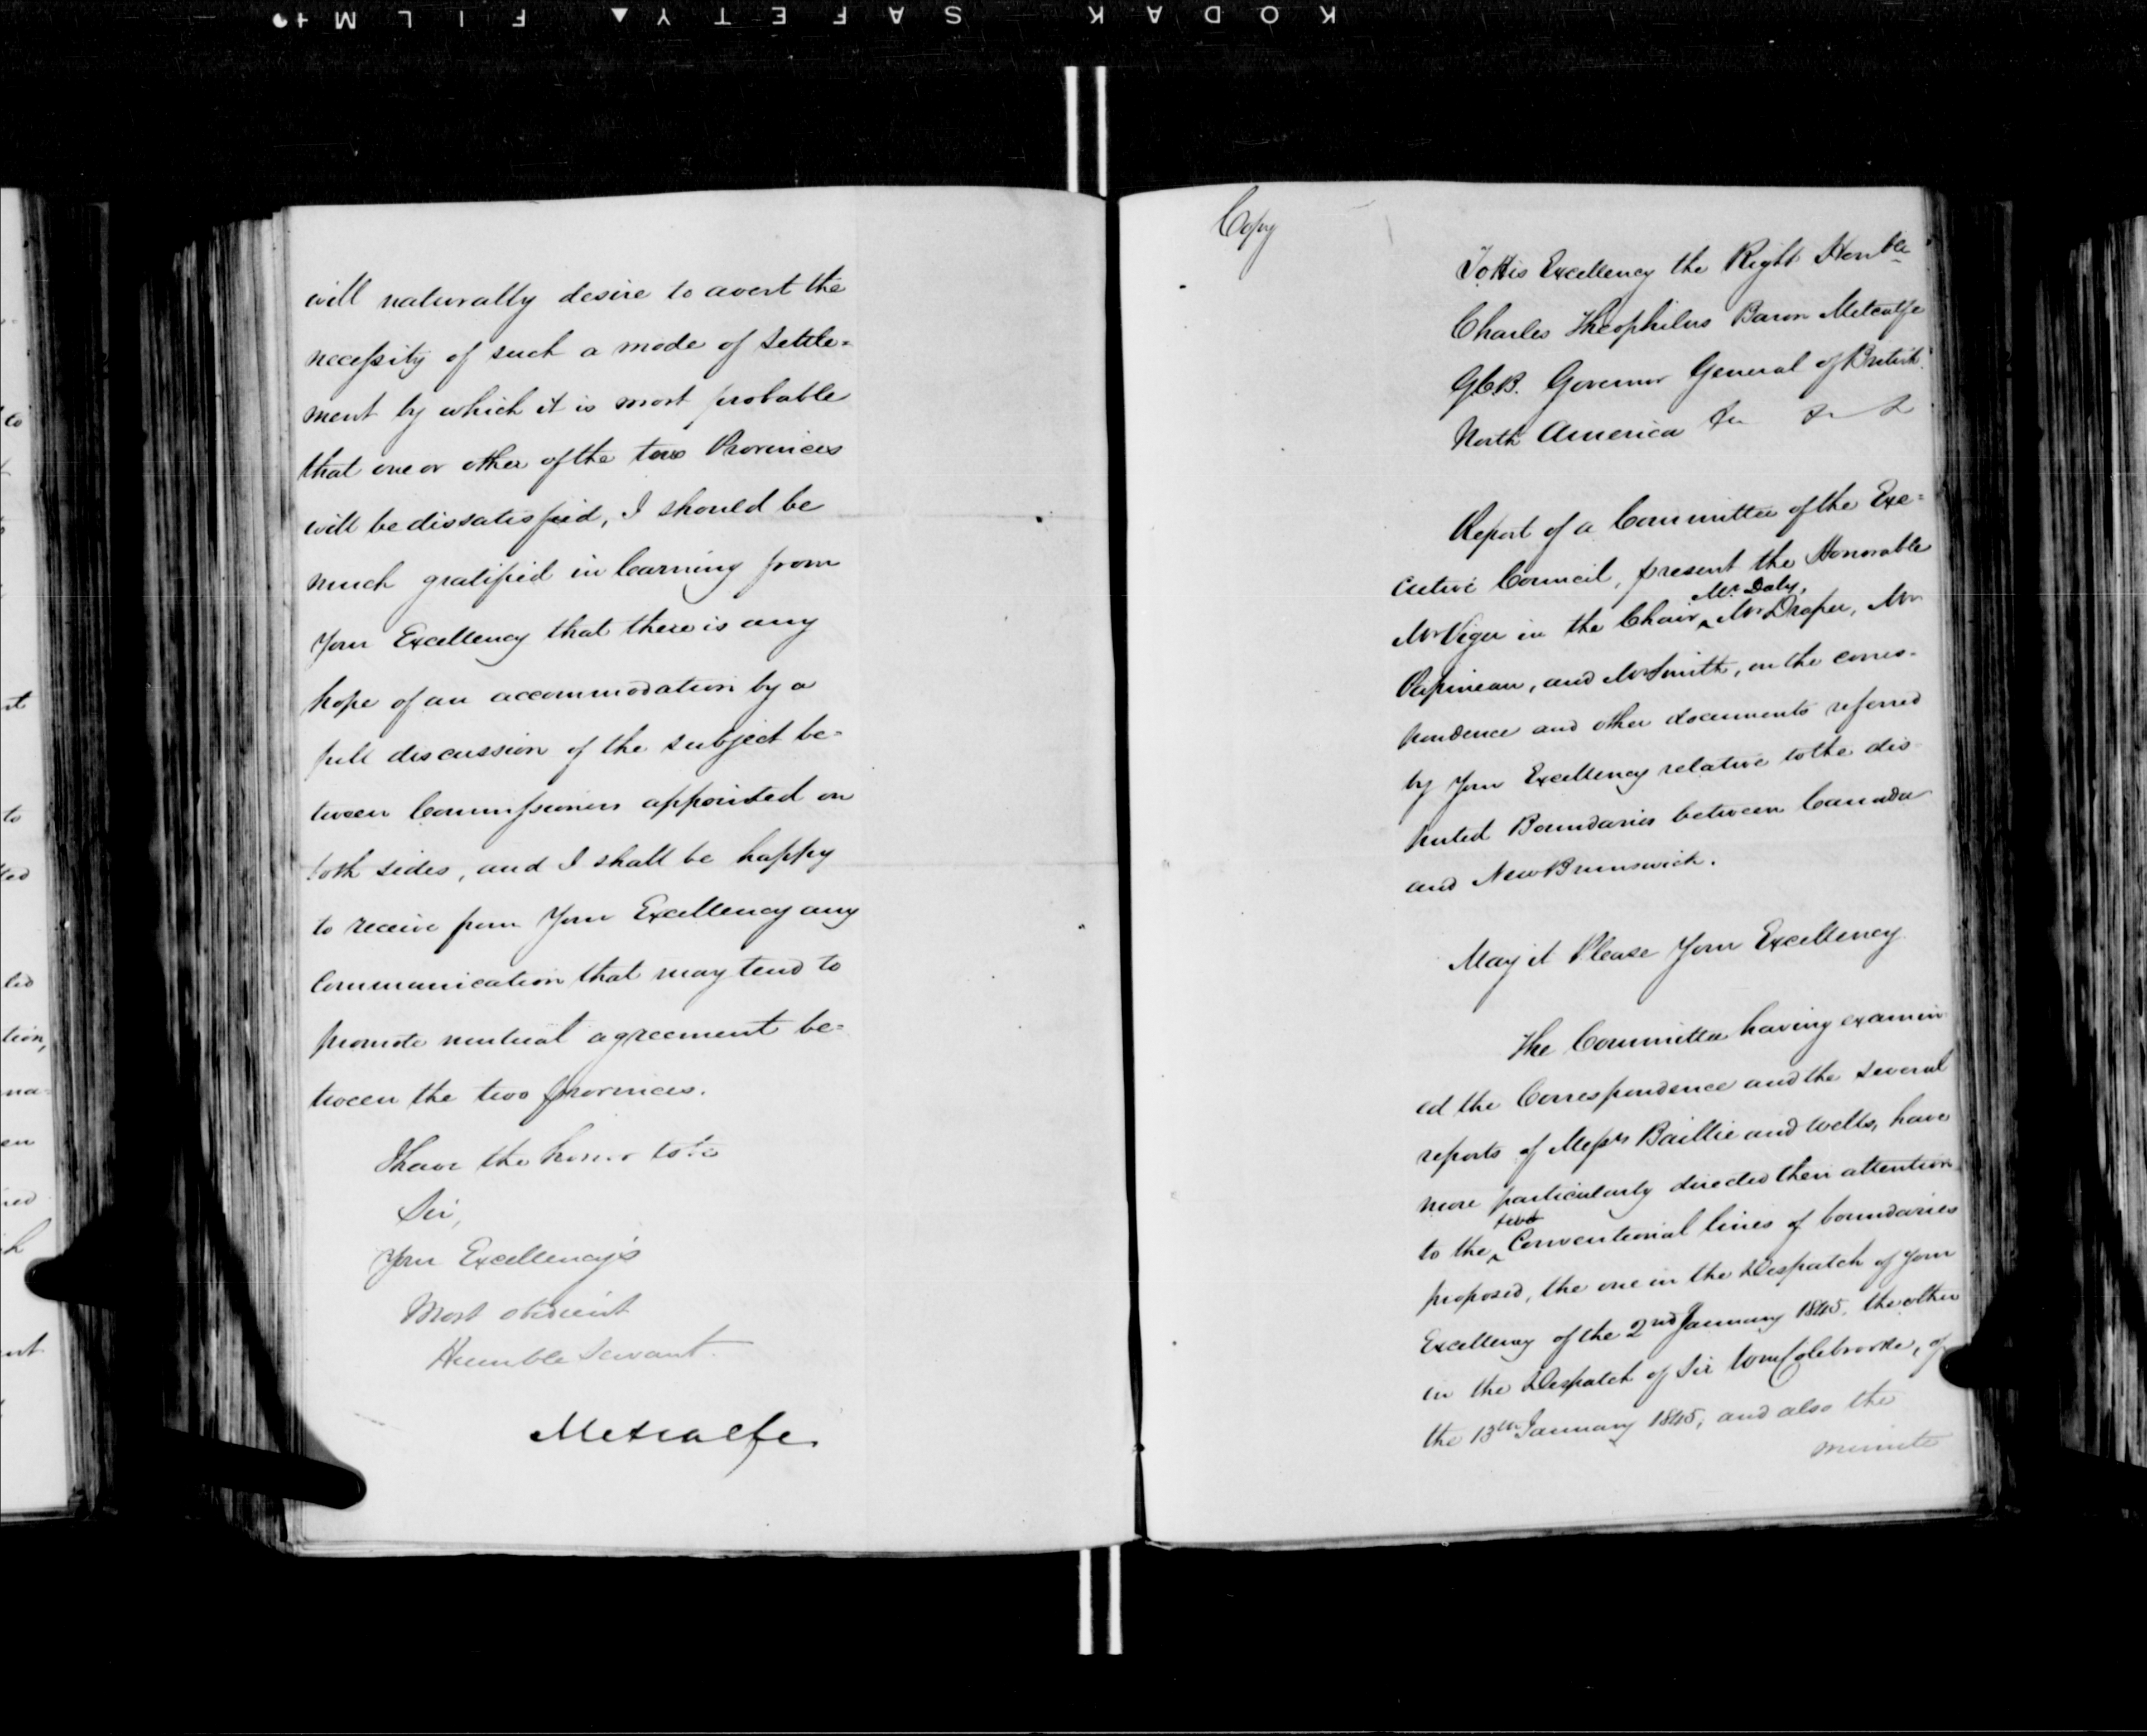 KODAK SAFETY ▲ FILM
will naturally desire to avert the
necessity of such a mode of settle=
ment by which it is most probable
that one or other of the two Provinces
will be dissatisfied, I should be
much gratified in learning from
Your Excellency that there is any
hope of an accommodation by a
full discussion of the subject be=
tween Commissioners appointed on
both sides, and I shall be happy
to receive from Your Excellency any
Communication that may tend to
promote mutual agreement be=
tween the two provinces.
I have the honor to be
Sir,
Your Excellency's
Most obedient
Humble Servant.
Metcalfe
Copy
To His Excellency the Right Honble
Charles Theophilus Baron Metcalfe
G.C.B. Governor General of British
North America &c &c &c
Report of a Committee of the Exe=
cutive Council, present the Honorable
Mr Viger in the Chair, Mr Daly, Mr Draper, Mr
Papineau, and Mr Smith, on the corres-
pondence and other documents referred
by Your Excellency relative to the dis-
puted Boundaries between Canada
and New Brunswick.
May it Please Your Excellency
The Committee having examin
ed the Correspondence and the several
reports of Messrs Baillie and Wells, have
more particularly directed their attention
to the two Conventional lines of boundaries
proposed, the one in the Despatch of Your
Excellency of the 2nd January 1845, the other
in the Despatch of Sir Wm Colebrooke, of
the 13th January 1845, and also the
minute
to
nt
to
ted
led
tion,
na-
en
ned
h
nt